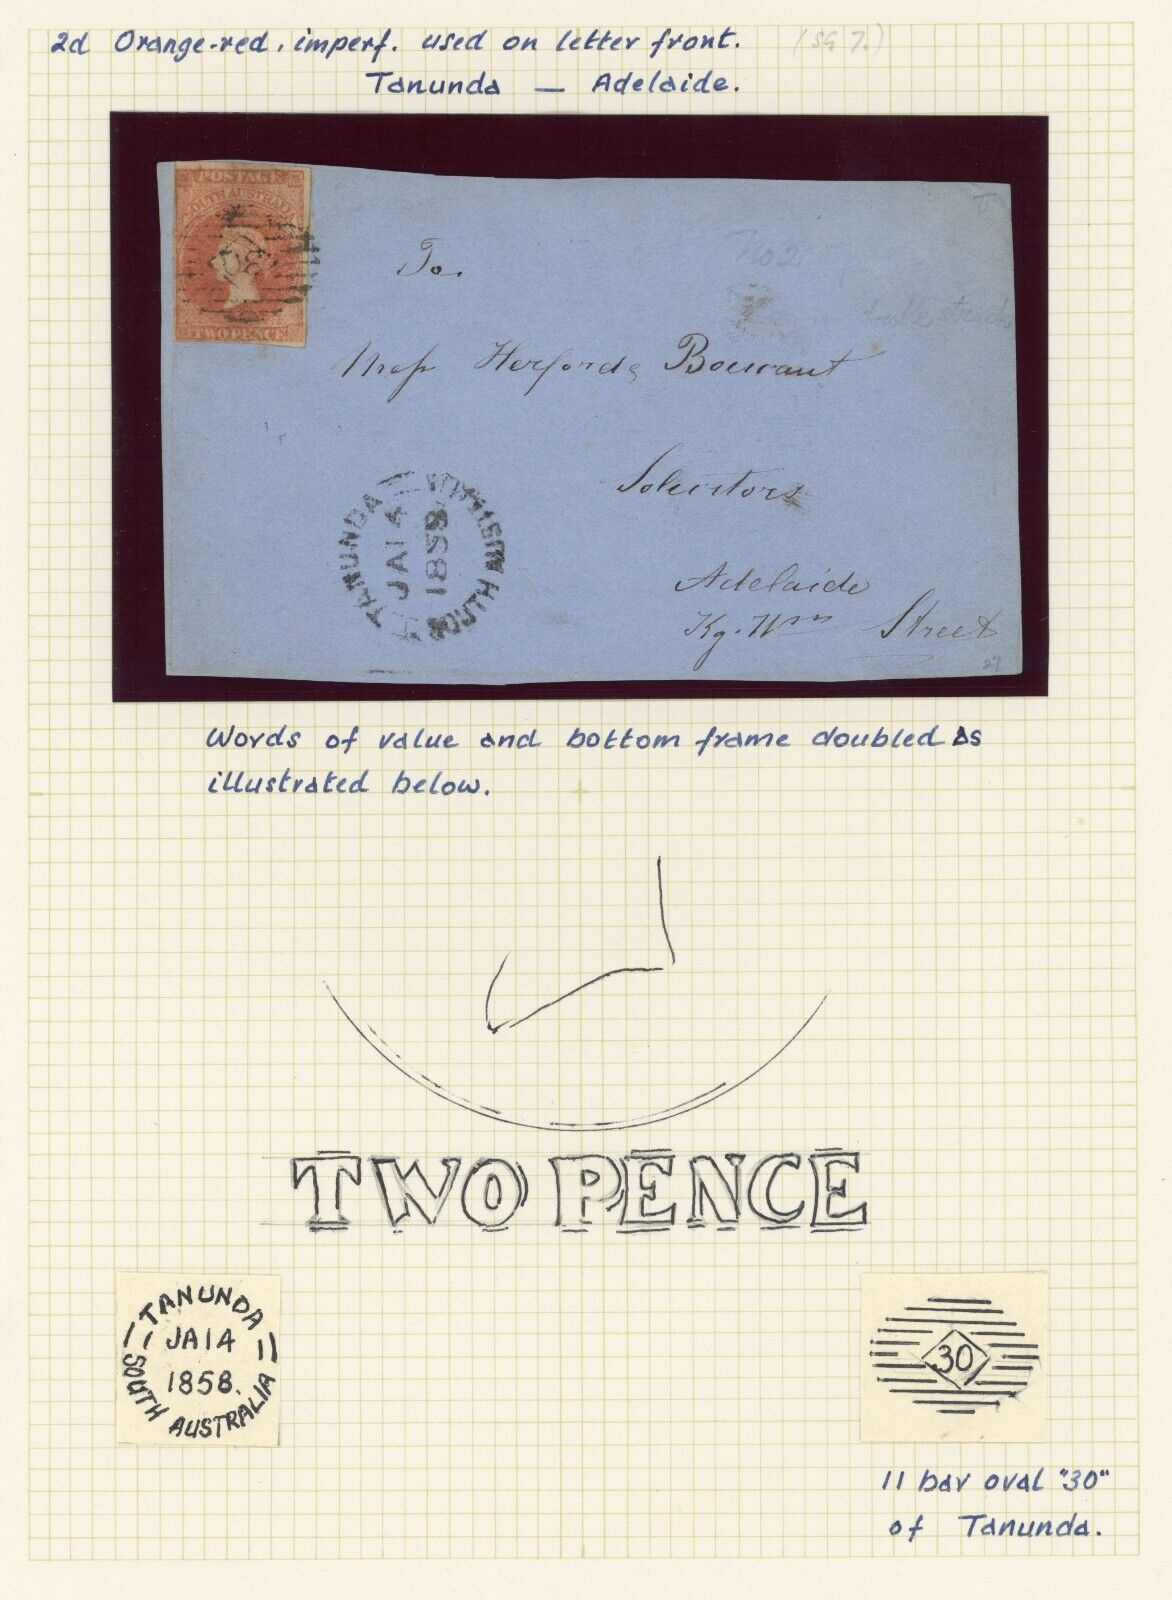 2d Orange-red, imperf. used on letter front. (SG 7.)
Tanunda — Adelaide.
POSTAGE
SOUTH AUSTRALIA
TWO PENCE
To.
Messrs Herford & Boucaut
Solicitors
Adelaide
Kg. Wm Street
27
TANUNDA
JA14
1858
SOUTH AUSTRALIA
Words of value and bottom frame doubled as
illustrated below.
TWO PENCE
TANUNDA
JA14
1858.
SOUTH AUSTRALIA
30
11 bar oval "30"
of Tanunda.